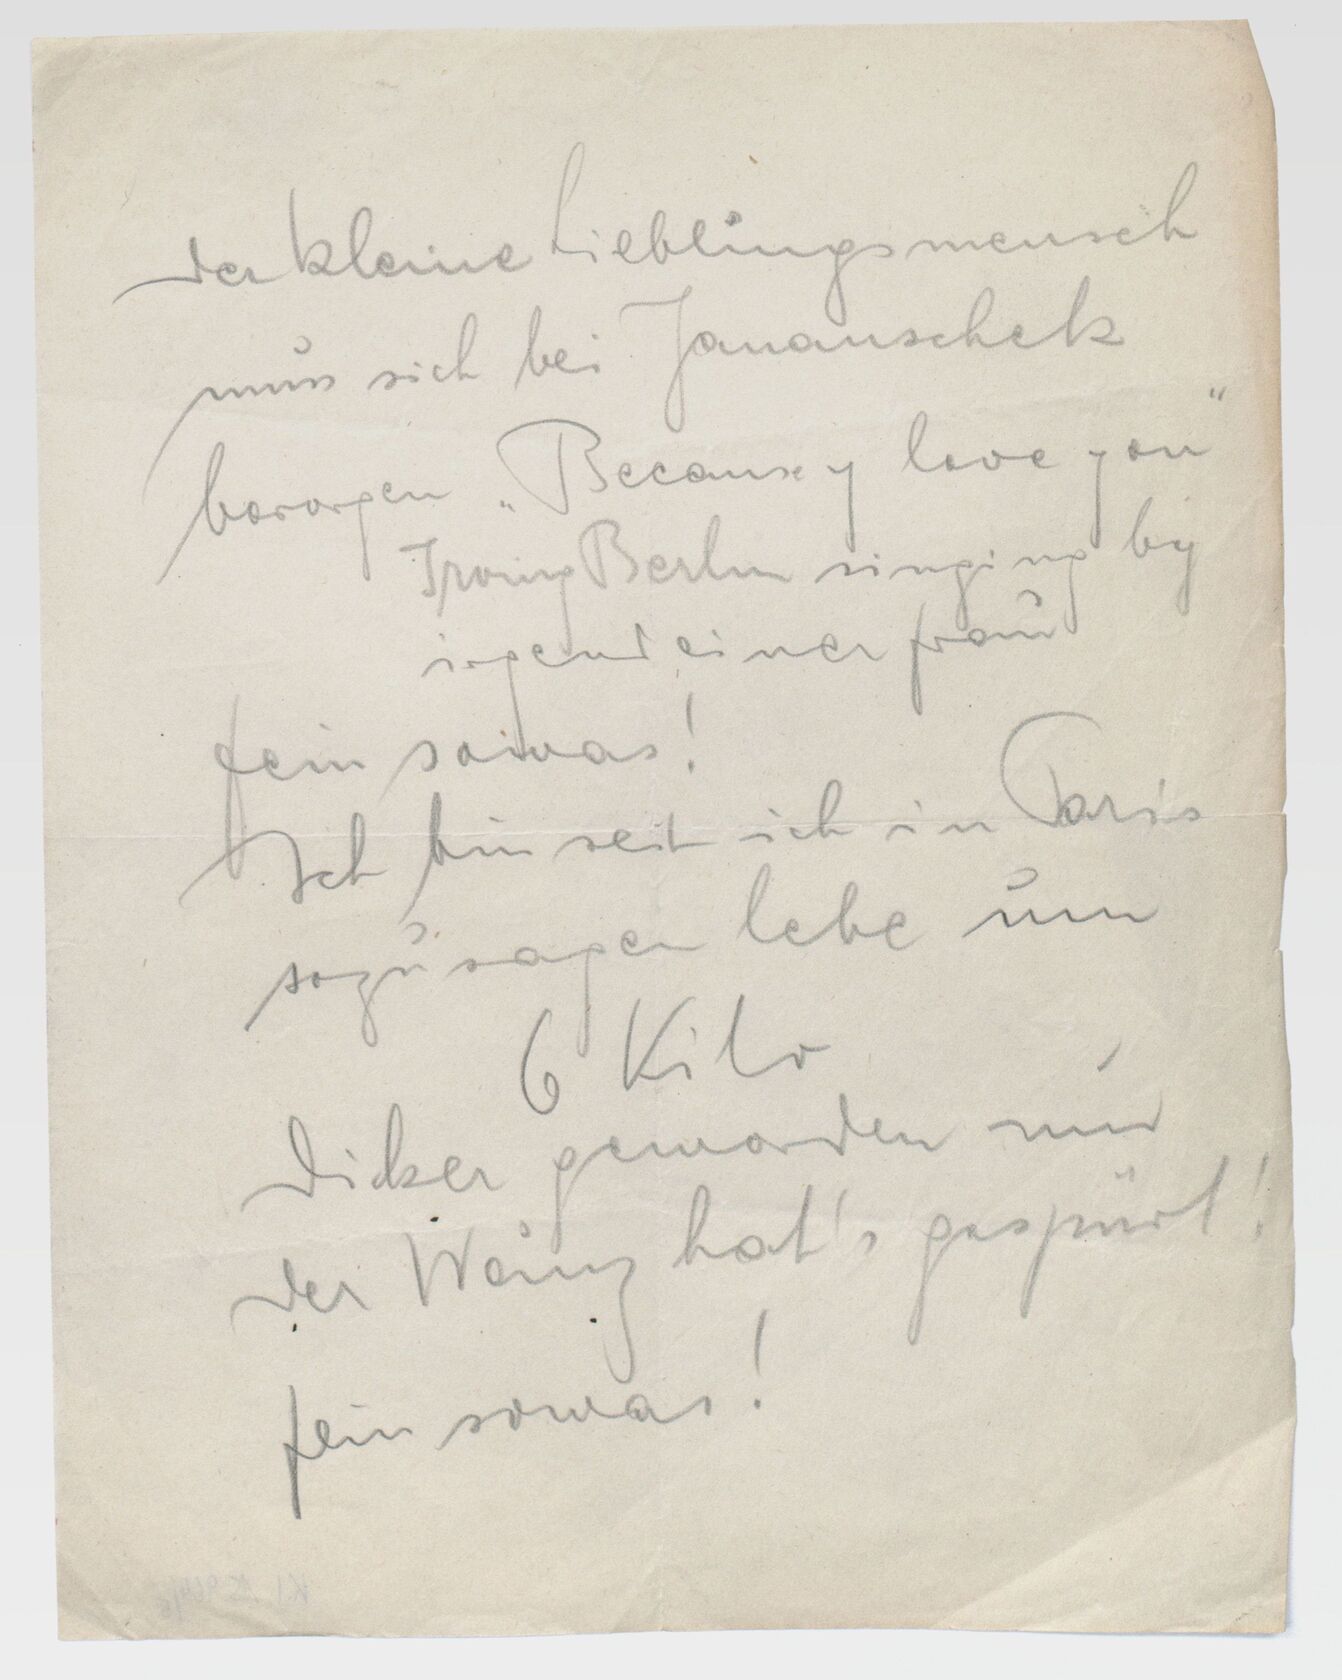 der kleine Lieblingsmensch
muss sich bei Jananschek
bororgen „Because y love you"
Irving Berlin singing by
irgend einer frau
fein sowas!
Ich bin seit ich in Paris
sozusagen lebe um
6 Kilo
dicker geworden und
der Weinz hat's gespürt!
fein sowas!